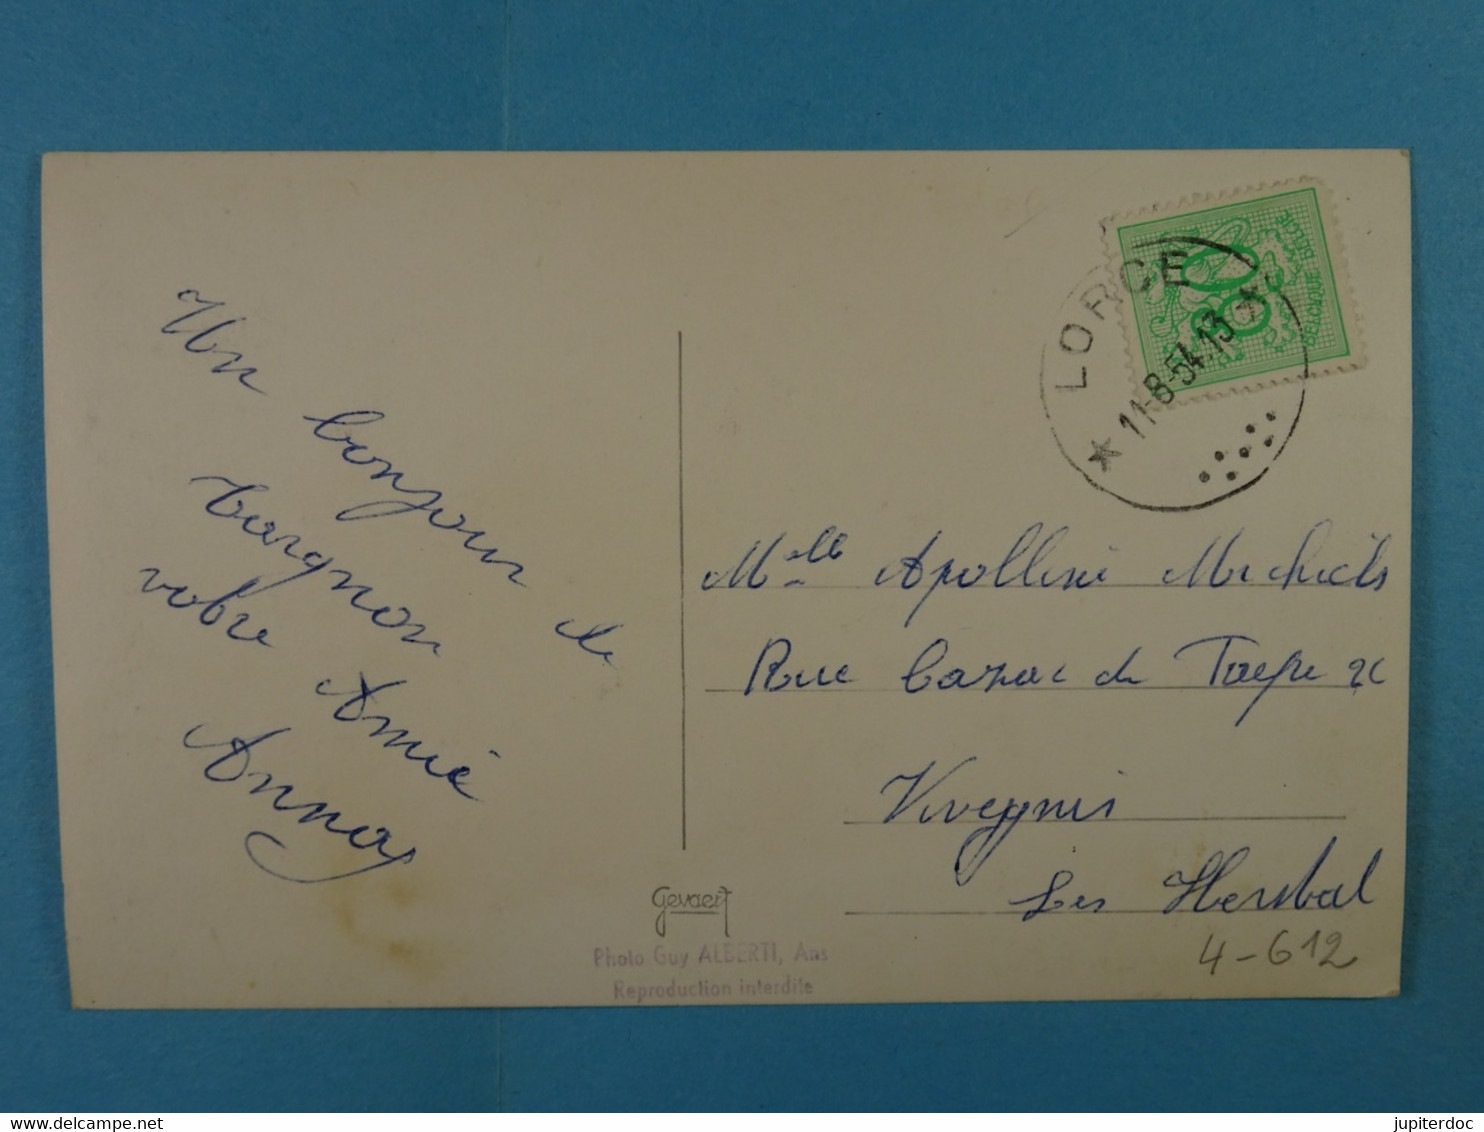 Un bonjour de
Targnon
votre Amie
Anna
LORCE
11-8-54.13
BELGIQUE BELGIE
Mlle Apolline Michiels
Rue
Vivegnis
Les Herstal
4-612
Gevaert
Photo Guy ALBERTI, Ans
Reproduction interdite
jupiterdoc